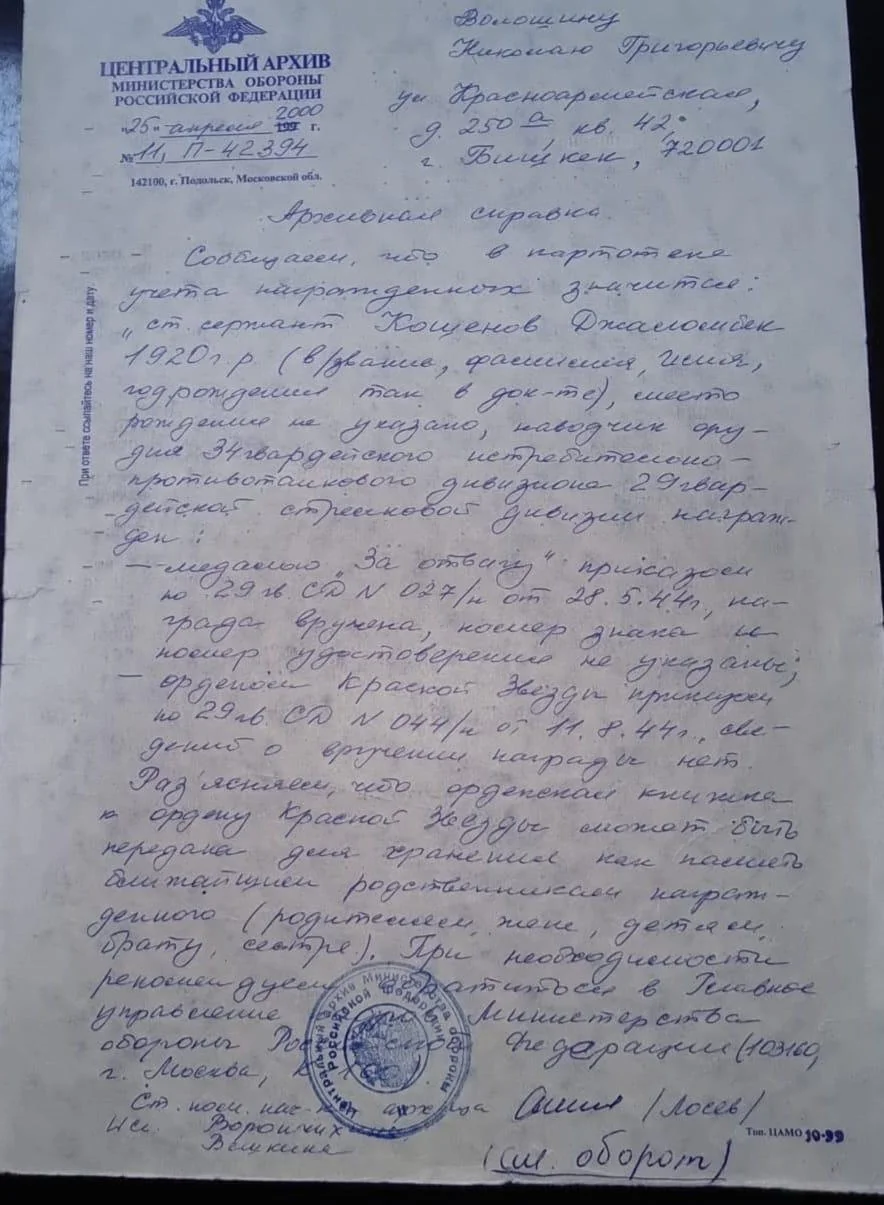 ЦЕНТРАЛЬНЫЙ АРХИВ
МИНИСТЕРСТВА ОБОРОНЫ
РОССИЙСКОЙ ФЕДЕРАЦИИ
"25" апреля 199 2000 г.
№ 11, П-42394
142100, г. Подольск, Московской обл.
Волошину
Николаю Григорьевичу
ул Красноармейская,
д. 250 а, кв. 42,
г. Бишкек, 720001
При ответе ссылайтесь на наш номер и дату.
Архивная справка.
Сообщаем, что в картотеке
учета награжденных значится:
"ст. сержант Кощенов Джаломбек
1920 г.р. (в/звание, фамилия, имя,
год рождения так в док-те), место
рождения не указано, наводчик ору-
дия 34 гвардейского истребительно-
противотанкового дивизиона 29 гвар-
дейской стрелковой дивизии награж-
ден:
— медалью "За отвагу" приказом
по 29 гв. СД N 027/н от 28.5.44г., на-
града вручена, номер знака и
номер удостоверения не указаны;
— орденом Красной Звезды приказом
по 29 гв. СД N 044/н от 11.8.44г., све-
дений о вручении награды нет.
Раз'ясняем, что орденская книжка
к ордену Красной Звезды может быть
передана для хранения как память
ближайшим родственникам награж-
денного (родителям, жене, детям,
брату, сестре). При необходимости
рекомендуем обратиться в Главное
управление Министерства
обороны Российской Федерации (103160,
г. Москва,
Ст. пом. нач-ка архива /Лосев/
Исп. Ворончих
Вешкина
(см. оборот)
Тип. ЦАМО 10-99
Центральный архив Министерства обороны
Российской Федерации